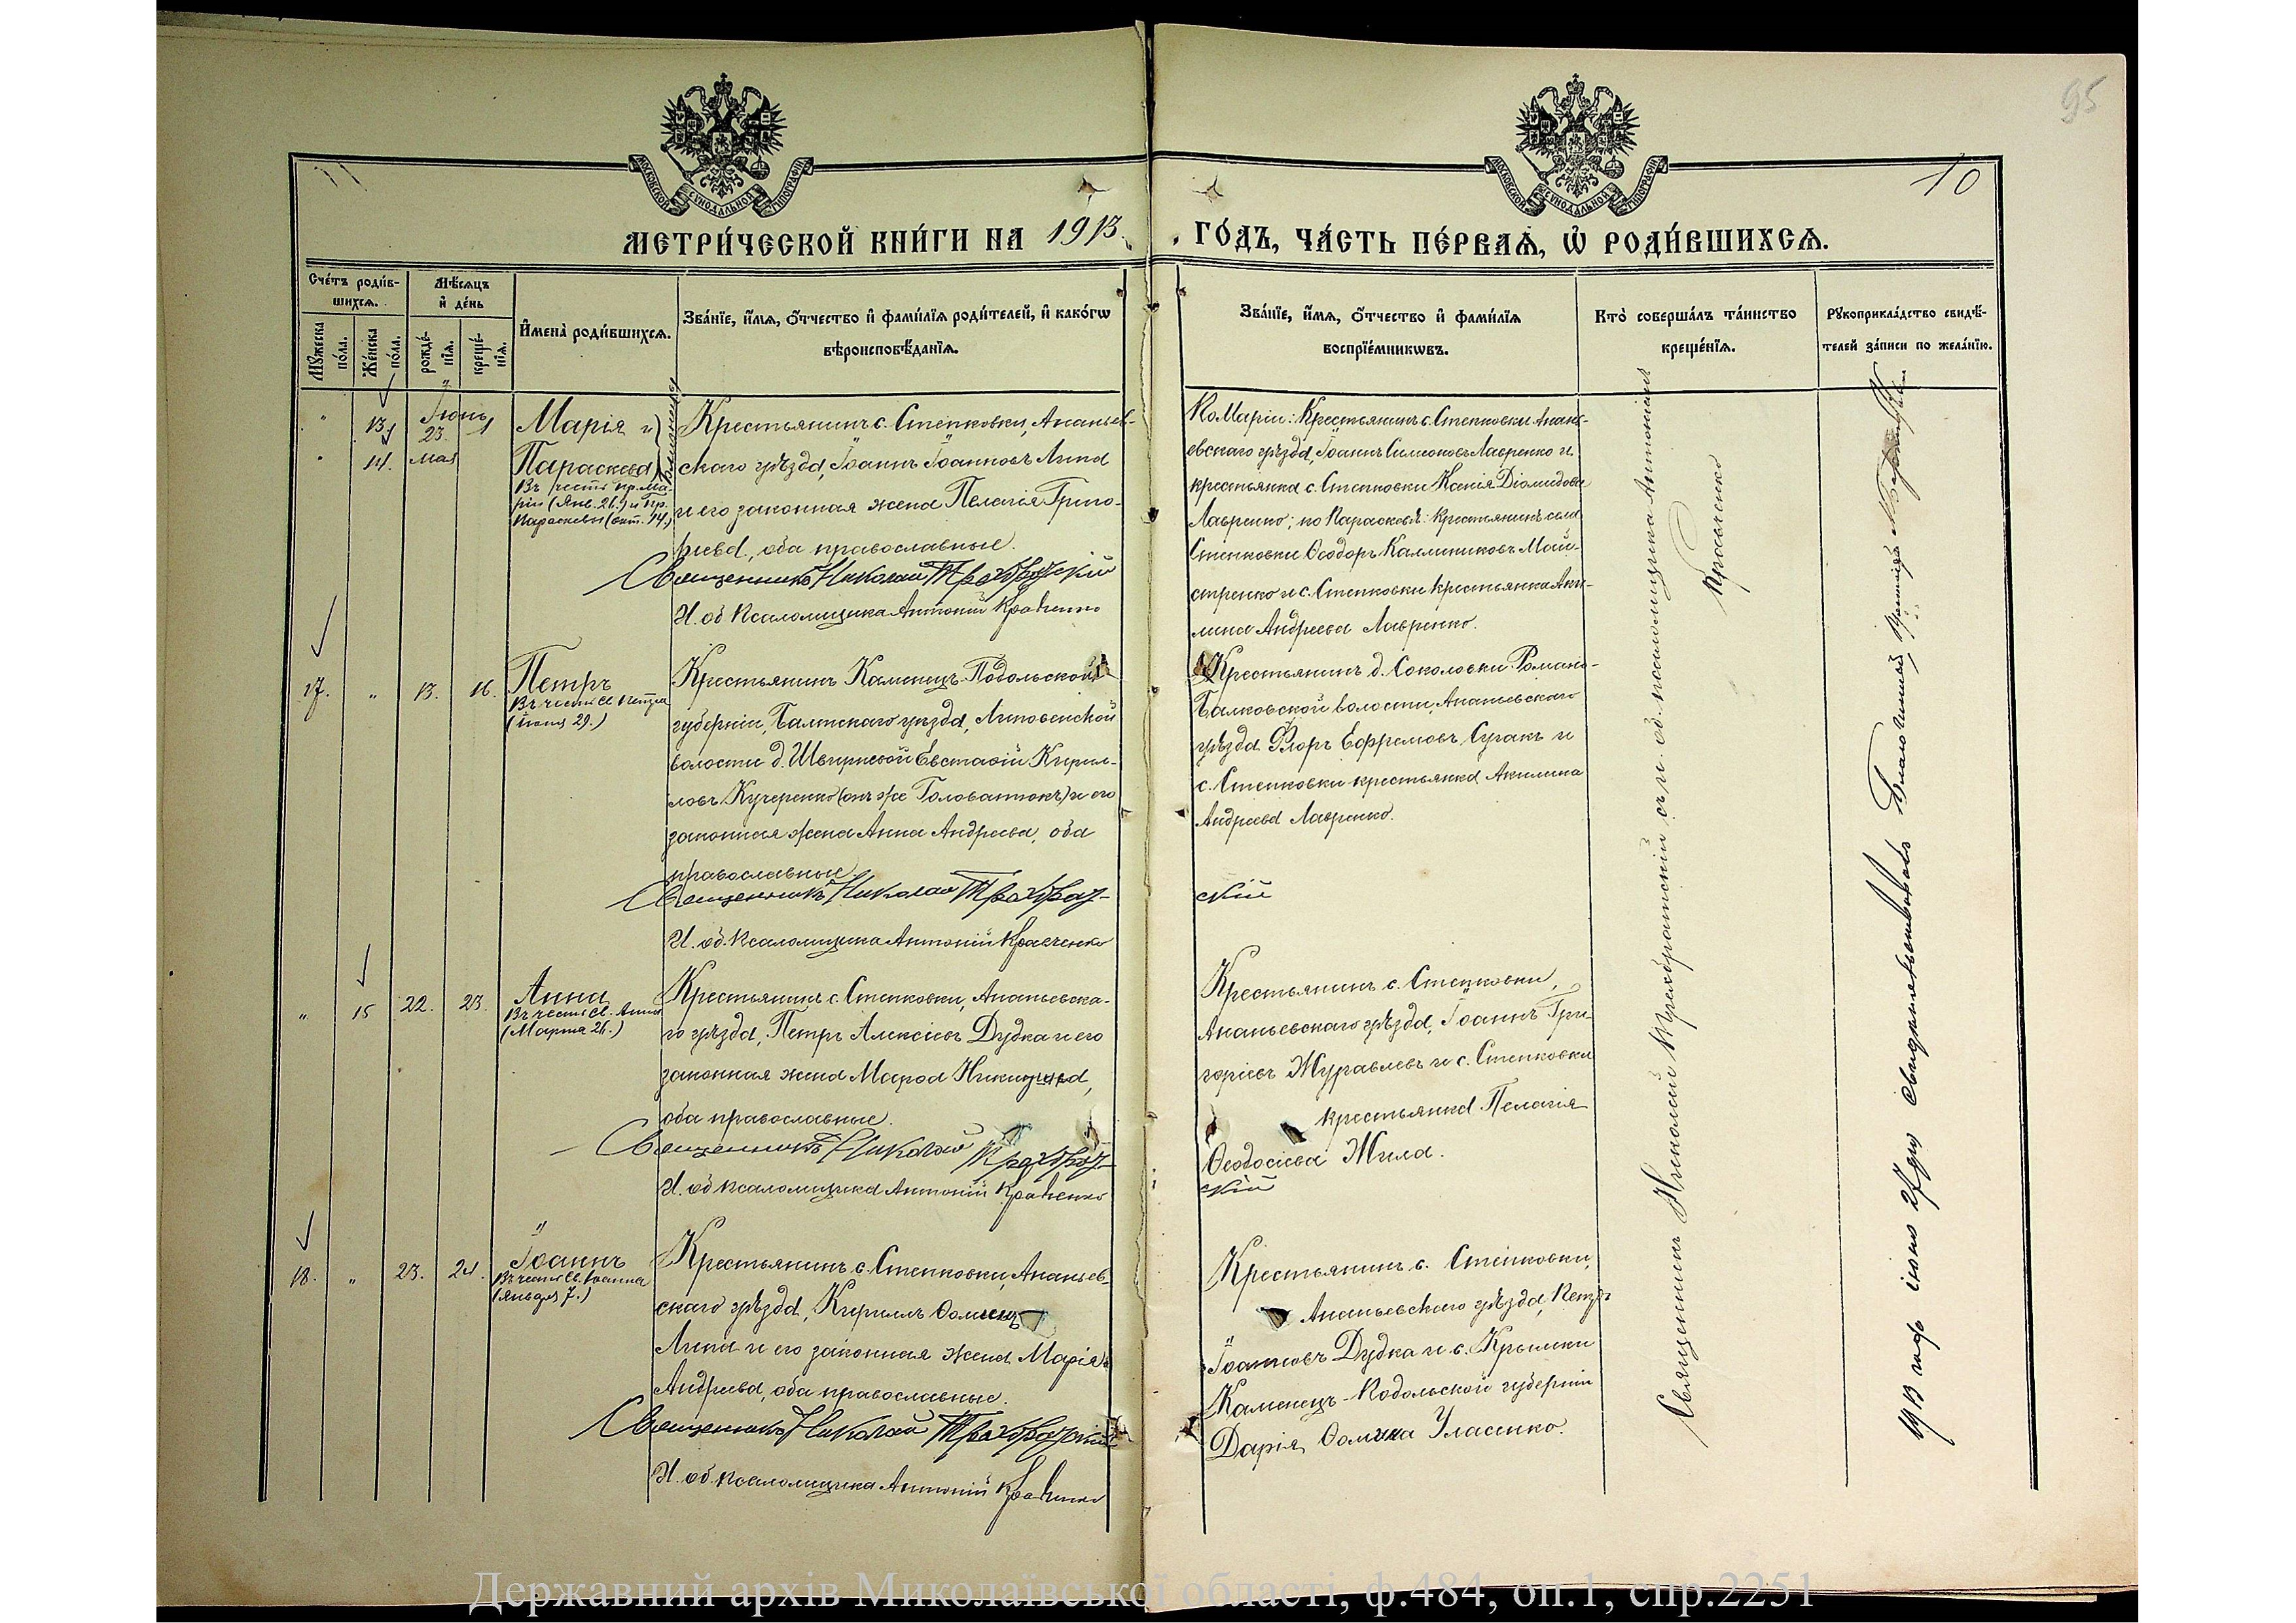 95
10
МОСКОВСКОЙ СѴНОДАЛЬНОЙ ТИПОГРАФІИ
МОСКОВСКОЙ СѴНОДАЛЬНОЙ ТИПОГРАФІИ
МЕТРИ́ЧЕСКОЙ КНИ́ГИ НА 1913 ГО́ДЪ, ЧА́СТЬ ПЕ́РВАѦ, Ѡ҆ РОДИ́ВШИХСѦ.
Сче́тъ роди́в-
шихсѧ.
Мꙋ́жеска по́ла.
Же́нска по́ла.
Мѣ́сѧцъ
и҆ де́нь
рожде́-нїѧ.
креще́-нїѧ.
И҆мена̀ роди́вшихсѧ.
Зва́нїе, и҆́мѧ, ѻ҆́тчество и҆ фами́лїѧ роди́телей, и҆ како́гѡ
вѣроисповѣ́данїѧ.
Зва́нїе, и҆́мѧ, ѻ҆́тчество и҆ фами́лїѧ
воспрїе́мникѡвъ.
Кто̀ соверша́лъ та́инство
креще́нїѧ.
Рꙋкоприкла́дство свидѣ́-
телей за́писи по жела́нїю.
" 13 Іюнь 1
23
" 14. Мая
Марія и
Параскева
близнецы
Въ честь пр. Ма-
ріи (Янв. 26.) и Пр.
Параскевы (окт. 14.)
Крестьянинъ с. Степковки, Ананьев-
скаго уѣзда, Іоаннъ Іоанновъ Липа
и его законная жена Пелагія Григо-
рьева, оба православные.
Священникъ Николай
И. об. Псаломщика Антоній Кравченко
Ко Маріи: Крестьянинъ с. Степковки Анань-
евскаго уѣзда, Іоаннъ Симеоновъ Лавренко и
крестьянка с. Степковки Ксенія Діомидова
Лавренко; ко Параскевѣ: крестьянинъ села
Степковки Ѳеодоръ Каллиниковъ Май-
стренко и с. Степковки крестьянка Аки-
лина Андреева Лавренко.
17. " 13. 16.
Петръ
Въ честь св. Петра
(іюня 29.)
Крестьянинъ Каменецъ-Подольской
губерніи, Балтскаго уѣзда,
волости д. Евстафій Кирил-
ловъ Кучеренко (онъ же Головатюкъ) и его
законная жена Анна Андреева, оба
православные.
Священникъ Николай
ский
И. об. Псаломщика Антоній Кравченко
Крестьянинъ д. Соколовки Романо-
Балковской волости, Ананьевскаго
уѣзда Флоръ Ефремовъ Сугакъ и
с. Степковки крестьянка Акилина
Андреева Лавренко.
" 15 22. 23.
Анна
Въ честь св. Анны
(Марта 26.)
Крестьянинъ с. Степковки, Ананьевска-
го уѣзда, Петръ Алексіевъ Дудка и его
законная жена Марѳа
оба православные.
Священникъ Николай
ский
И. об. псаломщика Антоній Кравченко
Крестьянинъ с. Степковки,
Ананьевскаго уѣзда, Іоаннъ Гри-
горіевъ Журавлевъ и с. Степковки
крестьянка Пелагія
Ѳеодосіева Жила.
18. " 23. 24.
Іоаннъ
Въ честь св. Іоанна
(Января 7.)
Крестьянинъ с. Степковки, Ананьев-
скаго уѣзда, Кириллъ Ѳоминъ
Липа и его законная жена Марія
Андреева, оба православные.
Священникъ Николай
И. об. псаломщика Антоній Кравченко
Крестьянинъ с. Степковки,
Ананьевскаго уѣзда, Петръ
Іоанновъ Дудка и с. Крымки
Каменецъ-Подольской губерніи
Дарія Ѳомина Уласенко.
Священникъ Николай съ и. об. псаломщика Антоніемъ
Кравченко
1913 года іюля 27 дня свидѣтельствовалъ Благочинный
Державний архів Миколаївської області, ф.484, оп.1, спр.2251